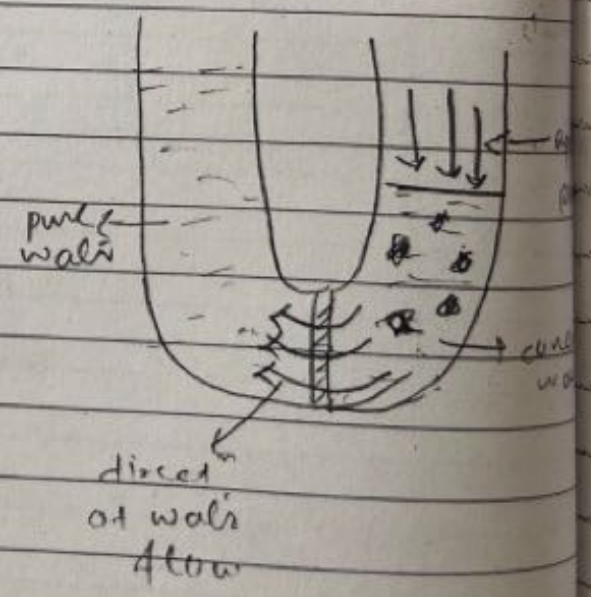 pure
water
direc^n
of water
flow
conc
wa